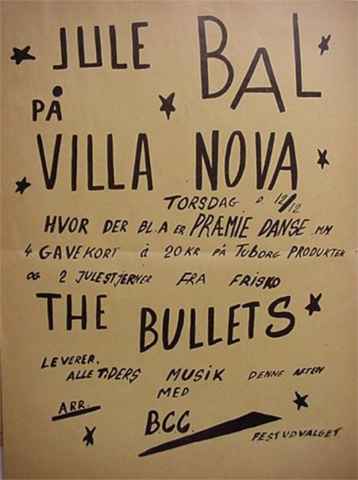 JULE BAL
PÅ
VILLA NOVA
TORSDAG D. 12/12
HVOR DER BL.A ER PRÆMIE DANSE MM
4 GAVEKORT á 20 KR PÅ TUBORG PRODUKTER
OG 2 JULESTJERNER FRA FRISKO
THE BULLETS
LEVERER.
ALLE TIDERS MUSIK DENNE AFTEN
MED
ARR. BCC.
FESTUDVALGET